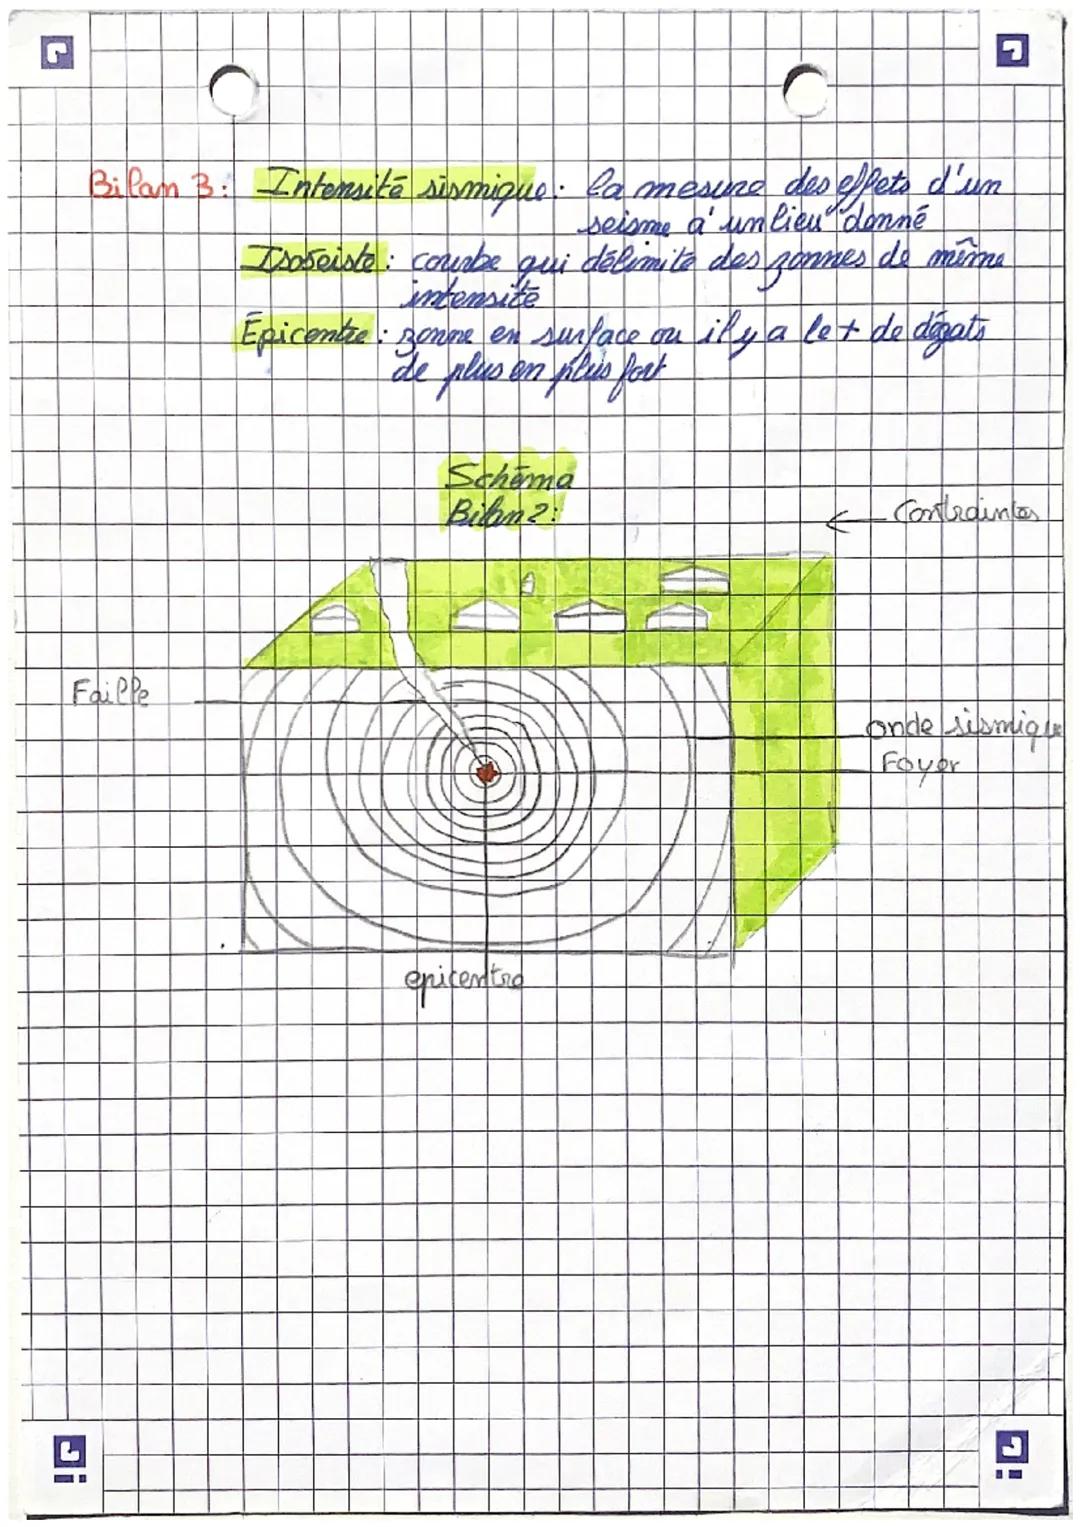 Bilan 3: Intensité sismique: la mesure des effets d'un
seisme à un lieu donné
Isoseiste: courbe qui délimite des zonnes de même
intensité
Épicentre: zonne en surface ou il y a le + de dégats
de plus en plus fort
Schéma
Bilan 2:
Contraintes
Faille
onde sismique
Foyer
epicentre